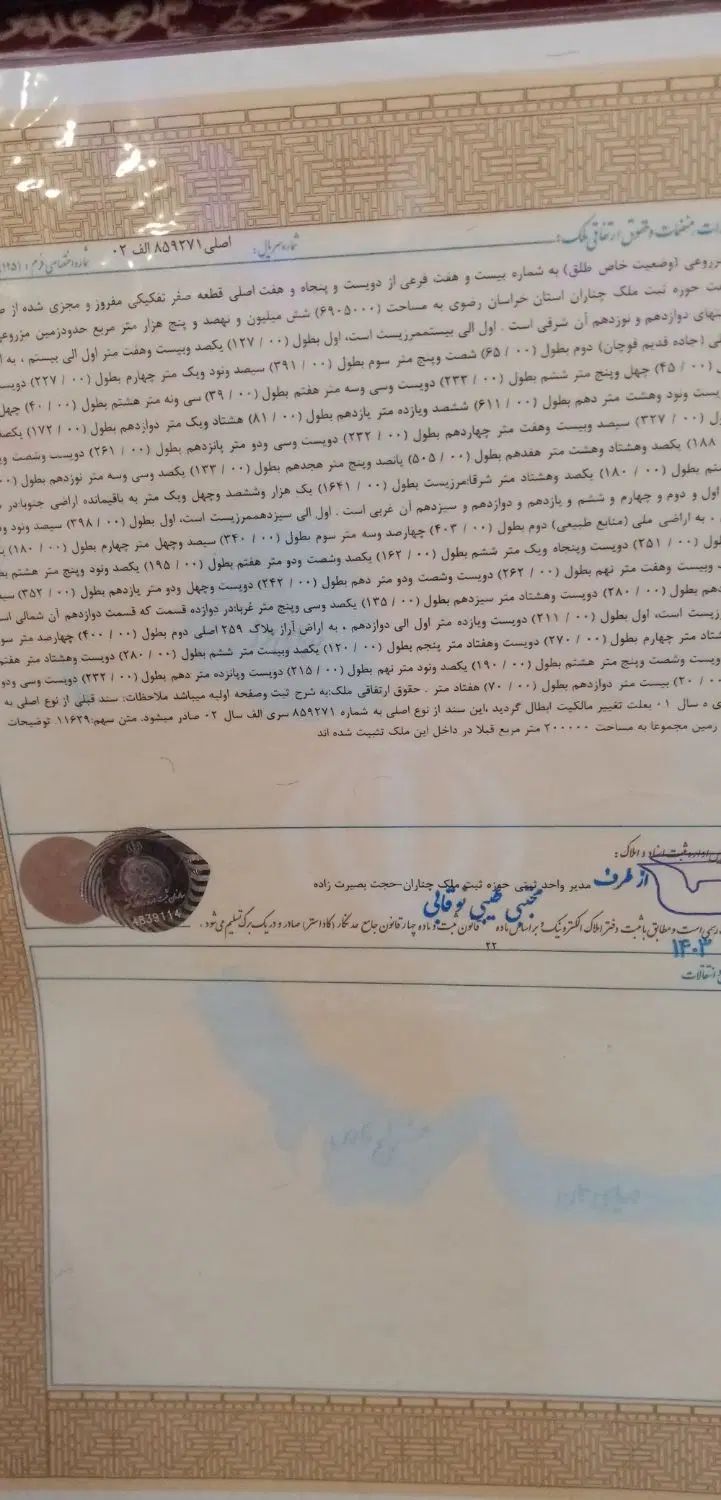 حدود، مشخصات و حقوق ارتفاقی ملک:
شماره سریال: اصلی ۸۵۹۲۷۱ الف ۰۲
شماره اختصاصی فرم: (۱۲۵
مزروعی (وضعیت خاص طلق) به شماره بیست و هفت فرعی از دویست و پنجاه و هفت اصلی قطعه صفر تفکیکی مفروز و مجزی شده از
حوزه ثبت ملک چناران استان خراسان رضوی به مساحت (۶۹۰۵۰۰۰) شش میلیون و نهصد و پنج هزار متر مربع حدودزمین مزروعی
دوازدهم و نوزدهم آن شرقی است . اول الی بیستممرزیست است، اول بطول (۰۰ / ۱۲۷) یکصد وبیست وهفت متر اول الی بیستم ، به
(جاده قدیم قوچان) دوم بطول (۰۰ / ۶۵) شصت وپنج متر سوم بطول (۰۰ / ۳۹۱) سیصد ونود ویک متر چهارم بطول (۰۰ / ۲۲۷) دویست
(۰۰ / ۴۵) چهل وپنج متر ششم بطول (۰۰ / ۲۳۳) دویست وسی وسه متر هفتم بطول (۰۰ / ۳۹) سی ونه متر هشتم بطول (۰۰ / ۴۰) چهل
ونود وهشت متر دهم بطول (۰۰ / ۶۱۱) ششصد ویازده متر یازدهم بطول (۰۰ / ۸۱) هشتاد ویک متر دوازدهم بطول (۰۰ / ۱۷۲) یکصد
(۰۰ / ۳۲۷) سیصد وبیست وهفت متر چهاردهم بطول (۰۰ / ۲۳۲) دویست وسی ودو متر پانزدهم بطول (۰۰ / ۲۶۱) دویست وشصت
۱۸۸) یکصد وهشتاد وهشت متر هفدهم بطول (۰۰ / ۵۰۵) پانصد وپنج متر هجدهم بطول (۰۰ / ۱۳۳) یکصد وسی وسه متر نوزدهم بطول (۰۰
بطول (۰۰ / ۱۸۰) یکصد وهشتاد متر شرقا:مرزیست بطول (۰۰ / ۱۶۴۱) یک هزار وششصد وچهل ویک متر به باقیمانده اراضی جنوبا:در
اول و دوم و چهارم و ششم و یازدهم و دوازدهم و سیزدهم آن غربی است . اول الی سیزدهممرزیست است، اول بطول (۰۰ / ۳۹۸) سیصد ونود
، به اراضی ملی (منابع طبیعی) دوم بطول (۰۰ / ۴۰۳) چهارصد وسه متر سوم بطول (۰۰ / ۳۴۰) سیصد وچهل متر چهارم بطول (۰۰ / ۱۸۰)
(۰۰ / ۲۵۱) دویست وپنجاه ویک متر ششم بطول (۰۰ / ۱۶۲) یکصد وشصت ودو متر هفتم بطول (۰۰ / ۱۹۵) یکصد ونود وپنج متر هشتم
وبیست وهفت متر نهم بطول (۰۰ / ۲۶۲) دویست وشصت ودو متر دهم بطول (۰۰ / ۲۴۲) دویست وچهل ودو متر یازدهم بطول (۰۰ / ۳۵۲)
بطول (۰۰ / ۲۸۰) دویست وهشتاد متر سیزدهم بطول (۰۰ / ۱۳۵) یکصد وسی وپنج متر غربا:در دوازده قسمت که قسمت دوازدهم آن شمالی
است، اول بطول (۰۰ / ۲۱۱) دویست ویازده متر اول الی دوازدهم ، به اراضی پلاک ۲۵۹ اصلی دوم بطول (۰۰ / ۴۰۰) چهارصد متر
متر چهارم بطول (۰۰ / ۲۷۰) دویست وهفتاد متر پنجم بطول (۰۰ / ۱۲۰) یکصد وبیست متر ششم بطول (۰۰ / ۲۸۰) دویست وهشتاد متر هفتم
دویست وشصت وپنج متر هشتم بطول (۰۰ / ۱۹۰) یکصد ونود متر نهم بطول (۰۰ / ۲۱۵) دویست وپانزده متر دهم بطول (۰۰ / ۲۳۲) دویست وسی ودو
۰۰ / ۲۰) بیست متر دوازدهم بطول (۰۰ / ۷۰) هفتاد متر . حقوق ارتفاقی ملک:به شرح ثبت وصفحه اولیه میباشد ملاحظات: سند قبلی از نوع اصلی به
ی ه سال ۰۱ بعلت تغییر مالکیت ابطال گردید ،این سند از نوع اصلی به شماره ۸۵۹۲۷۱ سری الف سال ۰۲ صادر میشود. متن سهم:۱۱۶۲۹. توضیحات
زمین مجموعا به مساحت ۲۰۰۰۰۰ متر مربع قبلا در داخل این ملک تثبیت شده اند
اداره ثبت اسناد و املاک:
از طرف مدیر واحد ثبتی حوزه ثبت ملک چناران-حجت بصیرت زاده
مجتبی طیبی نوقابی
4B39114
رسمی است و مطابق با ثبت دفتر املاک الکترونیک و بر اساس ماده ۲۲ قانون ثبت و ماده چهار قانون جامع حد نگار (کاداستر) صادر و در یک برگ تسلیم می شود .
۱۴۰۳
انتقالات